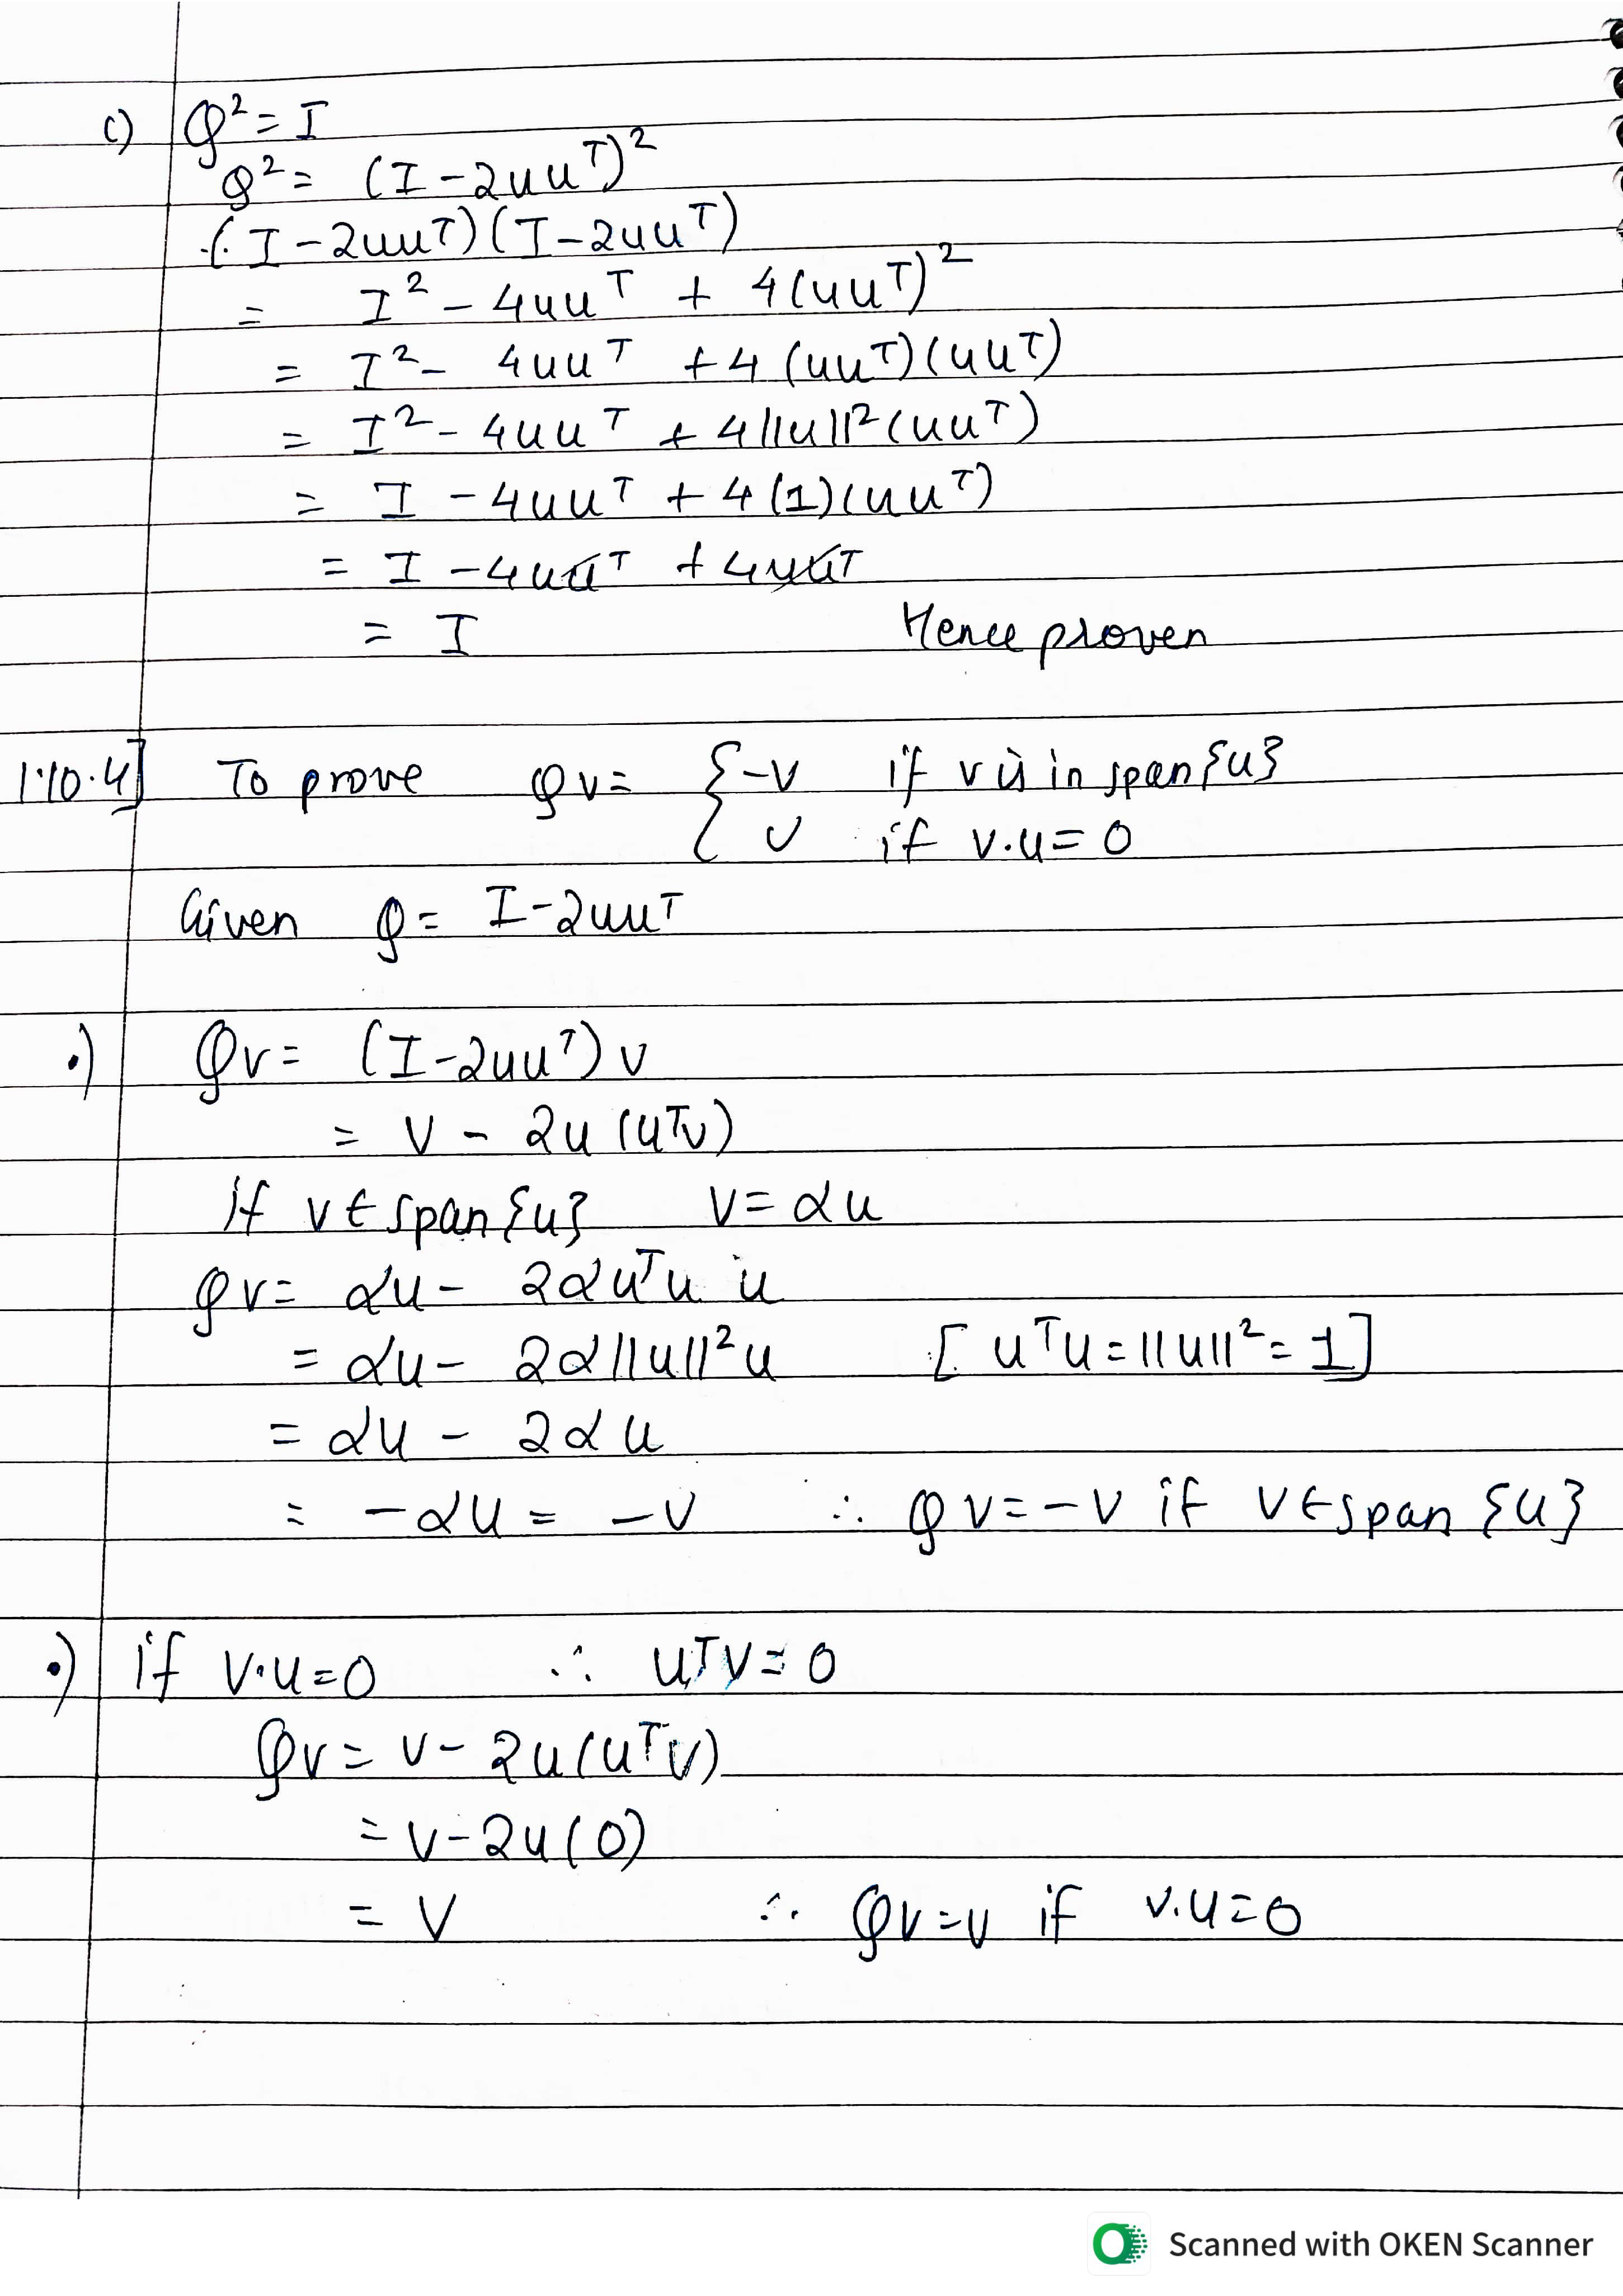 c) Q² = I
Q² = (I - 2uuᵀ)²
(I - 2uuᵀ)(I - 2uuᵀ)
= I² - 4uuᵀ + 4(uuᵀ)²
= I² - 4uuᵀ + 4(uuᵀ)(uuᵀ)
= I² - 4uuᵀ + 4||u||²(uuᵀ)
= I - 4uuᵀ + 4(1)(uuᵀ)
= I - 4uuᵀ + 4uuᵀ
= I Hence proven
1.10.4] To prove Qv = { -v if v is in span{u}
v if v.u = 0
Given Q = I - 2uuᵀ
•) Qv = (I - 2uuᵀ)v
= v - 2u(uᵀv)
if v ∈ span{u} v = αu
Qv = αu - 2αuᵀu u
= αu - 2α||u||²u [uᵀu = ||u||² = 1]
= αu - 2αu
= -αu = -v ∴ Qv = -v if v ∈ span {u}
•) if v·u = 0 ∴ uᵀv = 0
Qv = v - 2u(uᵀv)
= v - 2u(0)
= v ∴ Qv = v if v.u = 0
Scanned with OKEN Scanner